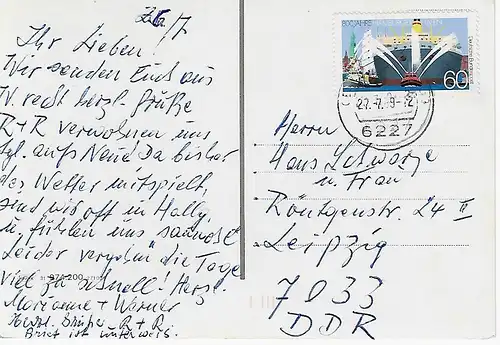 26/7
Ihr Lieben!
Wir senden Euch aus
W. recht herzl. Grüße
R + R verwöhnen uns
tgl. aufs Neue! Da bisher
das Wetter mitspielt,
sind wir oft in Hallg.
u. fühlen uns sauwohl
Leider vergehen die Tage
viel zu schnell! Herzl.
Marianne + Werner
Herzl. Grüße R + R
Brief ist unterwegs.
974 200
800 JAHRE HAMBURGER HAFEN
Deutsche Bundespost
60
27.-7.89-12
6227
Herrn
Hans Schwarze
u. Frau
Röntgenstr. 24 II
Leipzig
7033
DDR